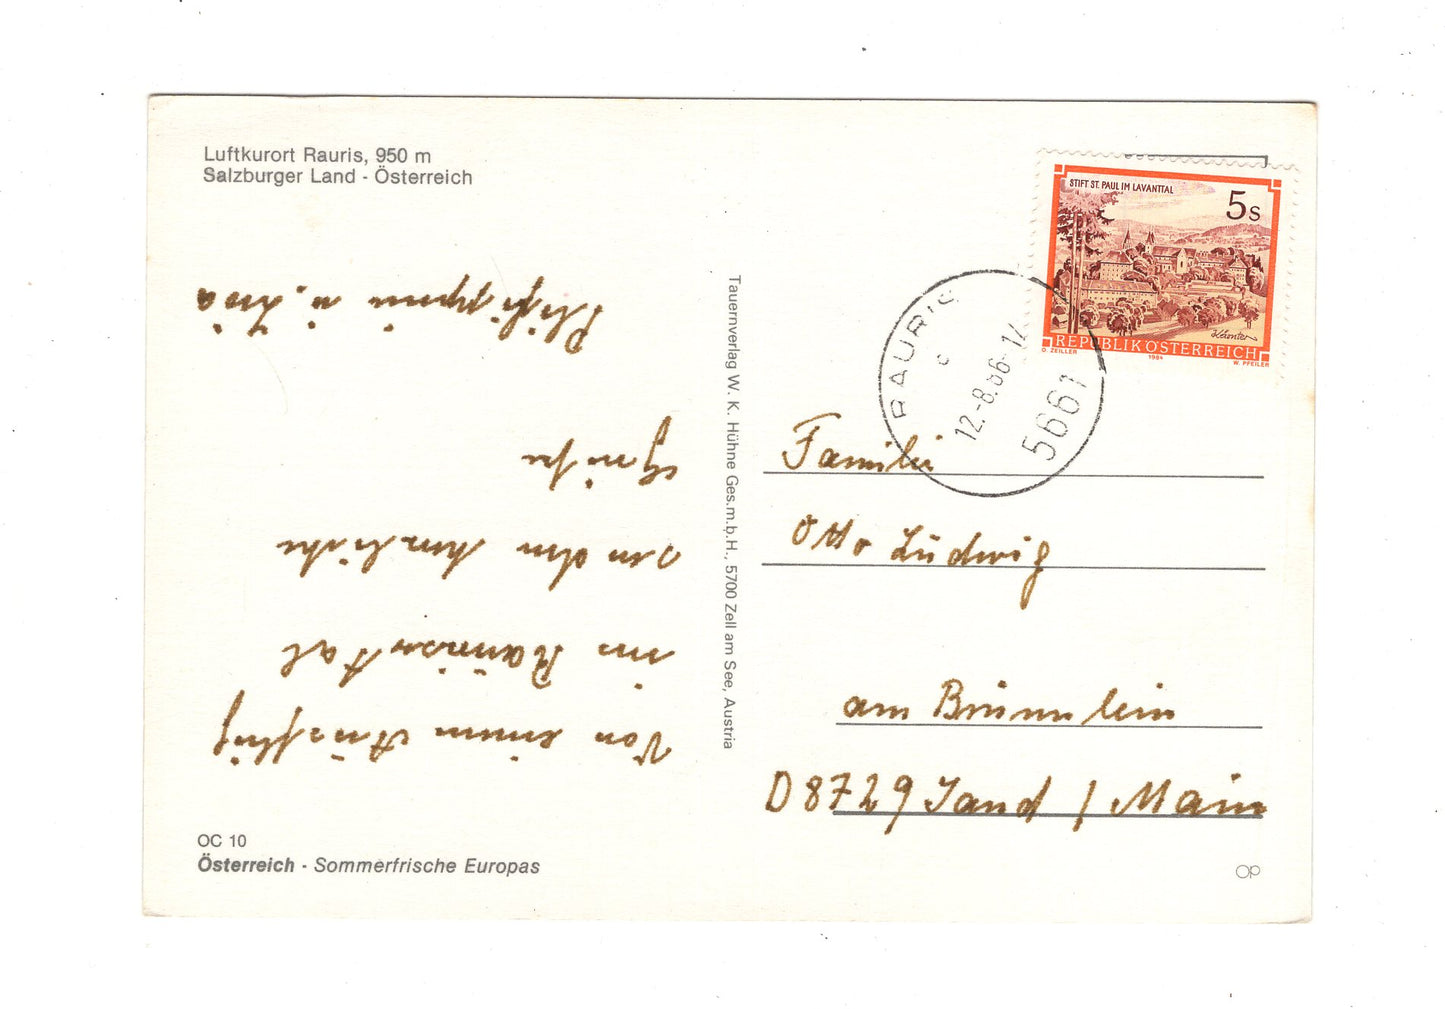 Luftkurort Rauris, 950 m
Salzburger Land - Österreich
Von einem Ausflug
ins Rauriser Tal
senden herzliche
Grüße
u. Eva
OC 10
Österreich - Sommerfrische Europas
Tauernverlag W. K. Hühne Ges.m.b.H., 5700 Zell am See, Austria
STIFT ST. PAUL IM LAVANTTAL
5 S
Kärnten
REPUBLIK ÖSTERREICH
O. ZEILLER 1984 W. PFEILER
RAURIS
c
12.-8.86-17
5661
Familie
Otto Ludwig
am Brünnlein
D 8729 Sand / Main